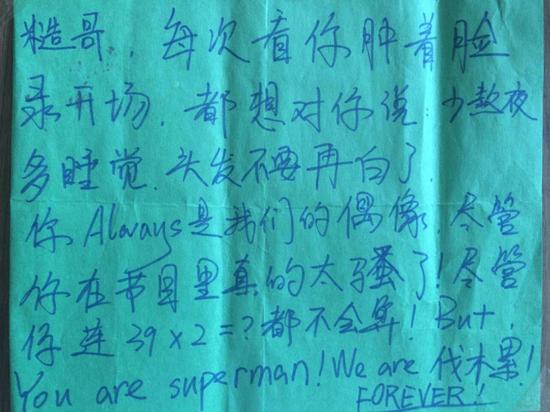 糙哥，每次看你肿着脸
录开场，都想对你说 少熬夜
多睡觉，头发不要再白了，
你 Always是我们的偶像，尽管
你在节目里真的太骚了！尽管
你连 39×2=？都不会算！But，
You are superman! We are 伐木累!
FOREVER!